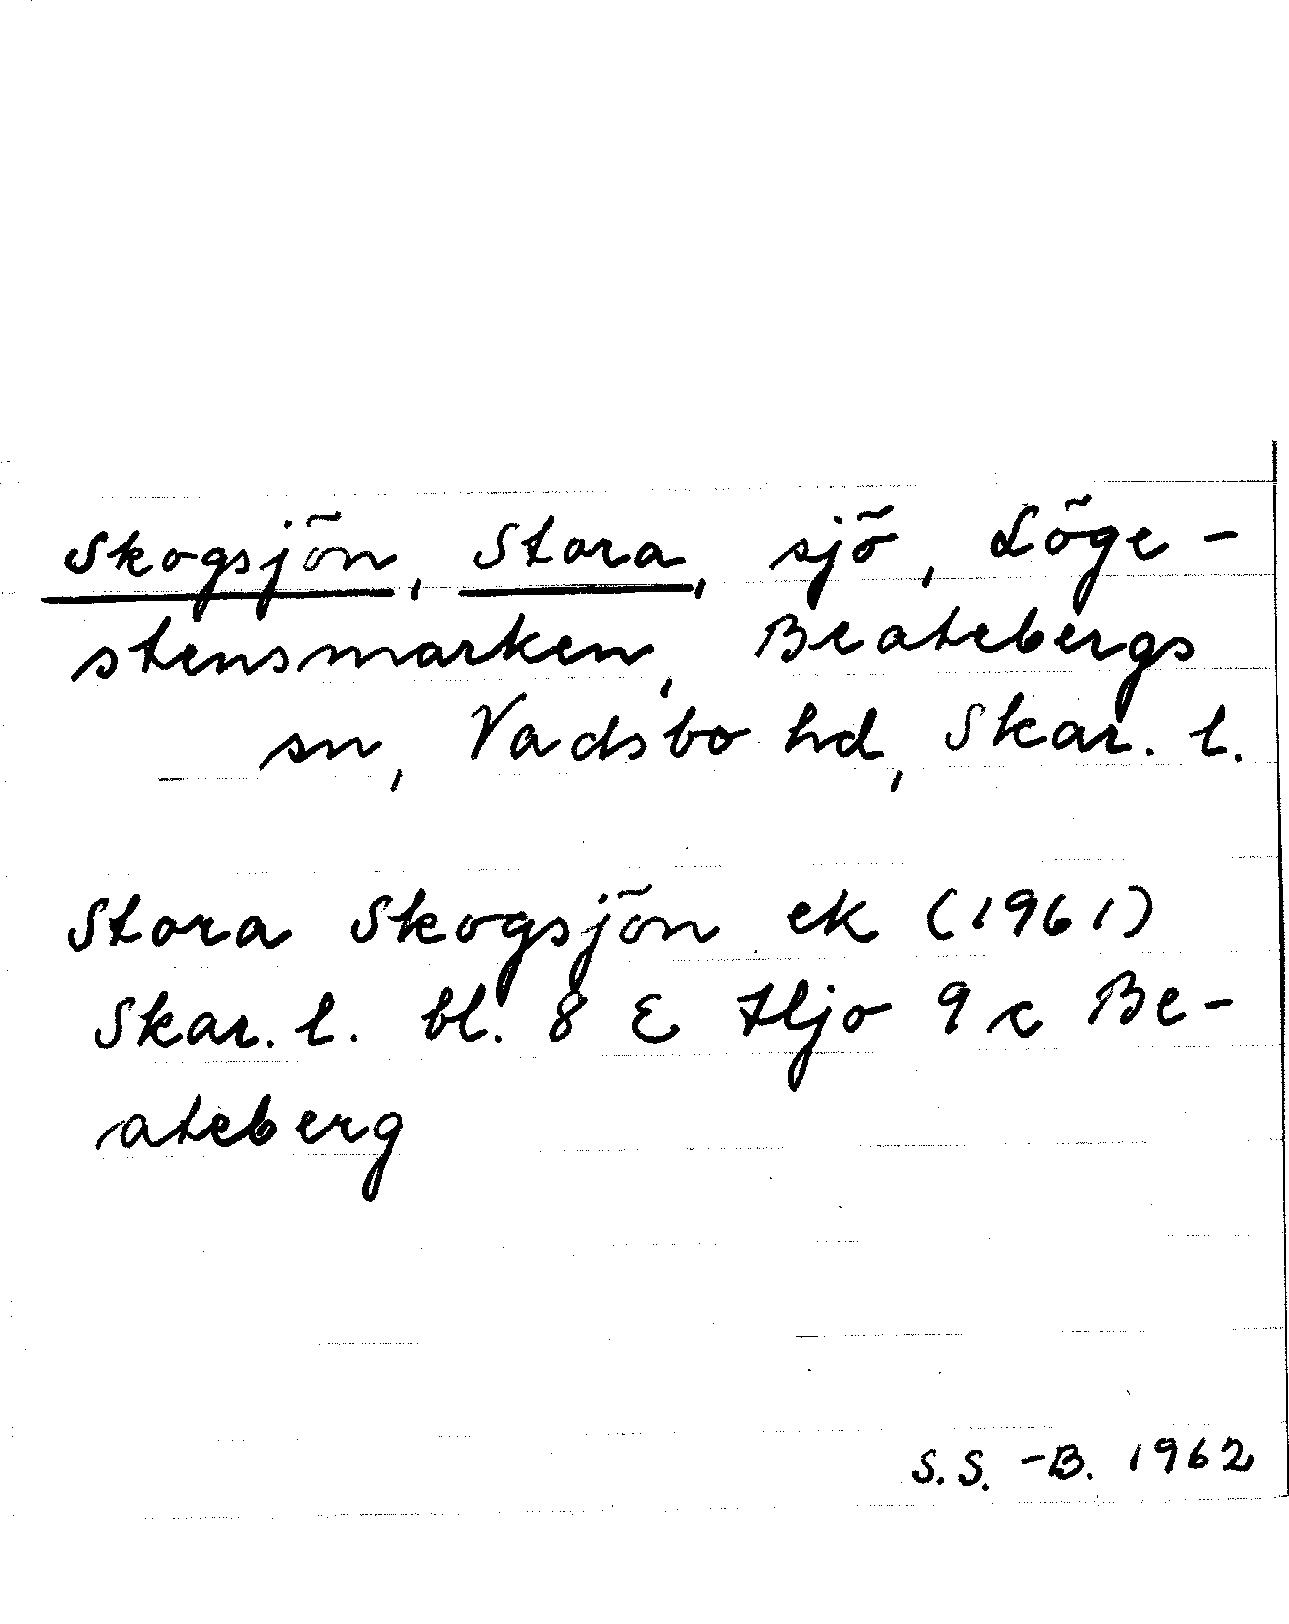 Skogsjön, Stora, sjö, Löge-
stensmarken, Beatebergs
sn, Vadsbo hd, Skar. l.
Stora Skogsjön ek (1961)
Skar. l. bl. 8 E Hjo 9 c Be-
ateberg
S.S. -B. 1962